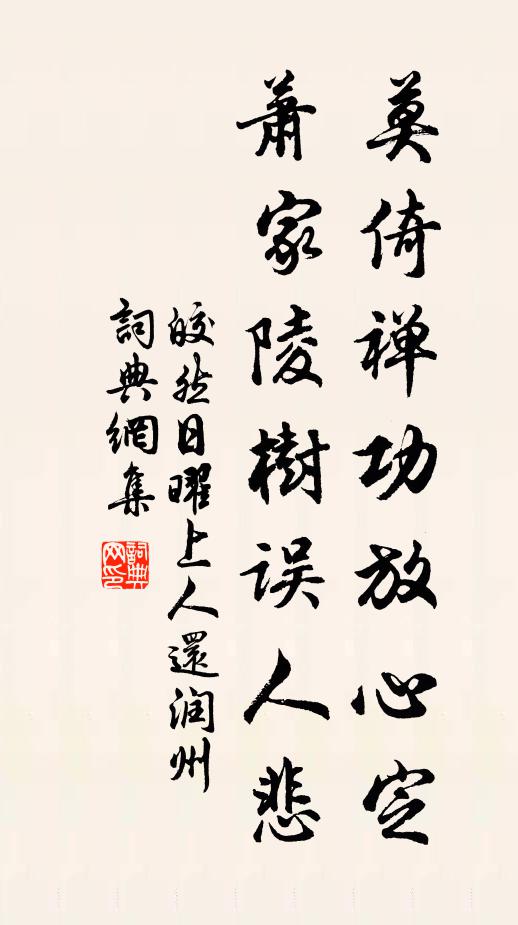 莫倚禅功放心定
蕭家陵樹误人悲
皎然日曜上人還润州
詞典網集
詞典网印